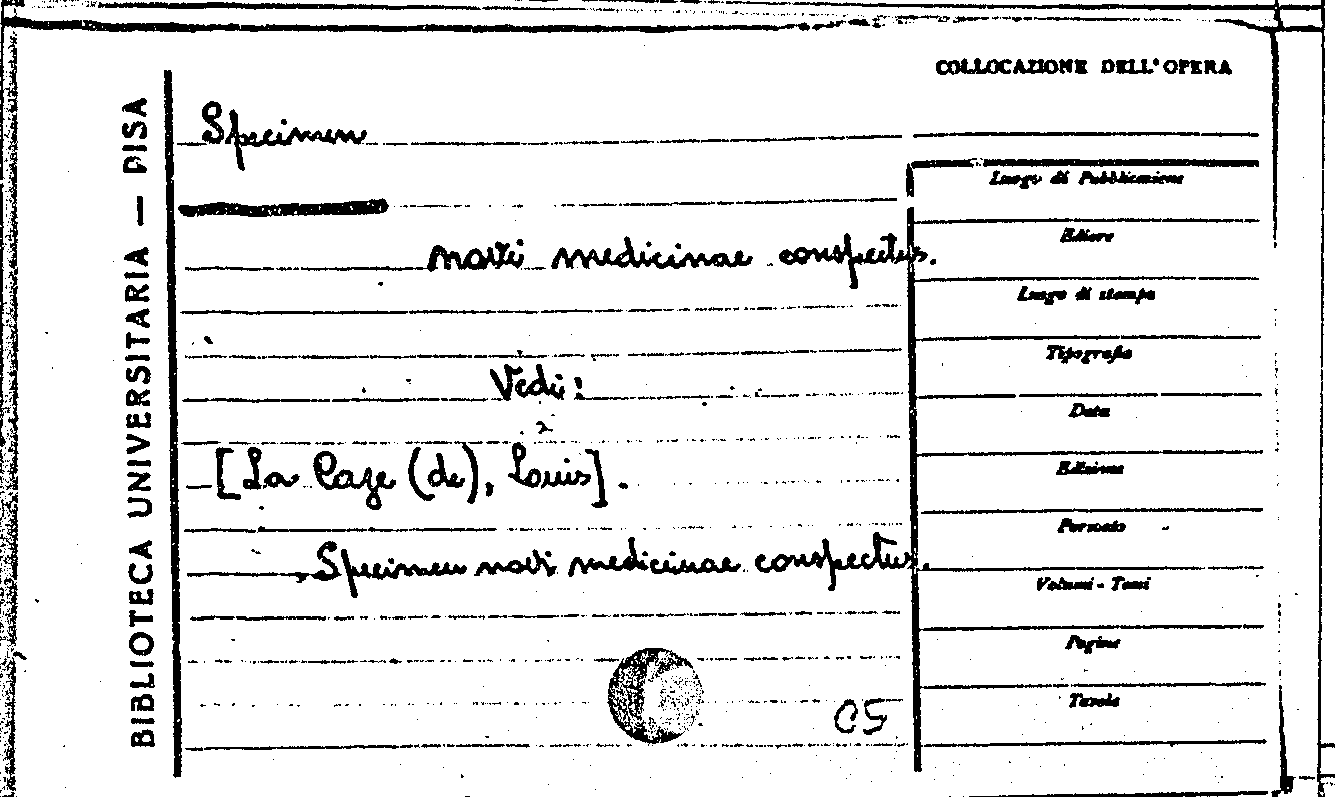 BIBLIOTECA UNIVERSITARIA — PISA
COLLOCAZIONE DELL'OPERA
Specimen
novi medicinae conspectus.
Vedi:
[La Caze (de), Louis].
Specimen novi medicinae conspectus.
C5
Luogo di Pubblicazione
Editore
Luogo di stampa
Tipografia
Data
Edizione
Formato
Volumi - Tomi
Pagine
Tavole